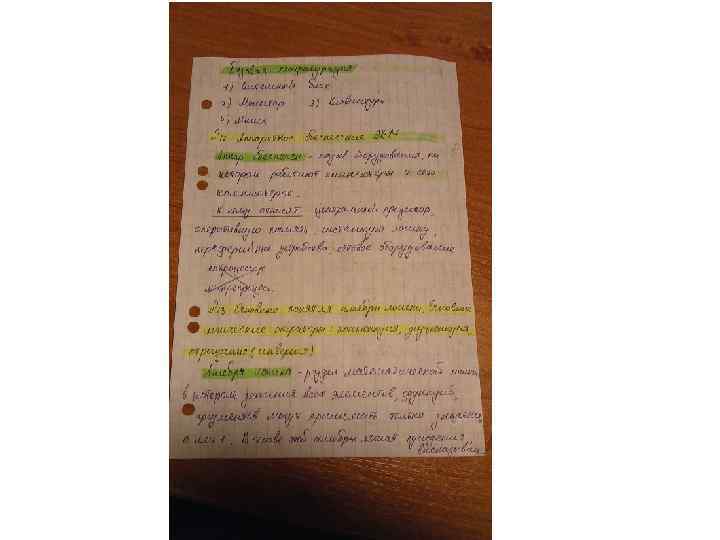 Базовая конфигурация
1) Системный блок
2) Монитор 3) Клавиатура
4) Мышь
№12 Аппаратное обеспечение ЭВМ
Аппар. обеспечен - оборудования, на
котором работают компьютеры и сети
компьютеров.
К нему относят центральный процессор,
оперативную память, системную логику,
периферийные устройства, сетевое оборудование
микропроцессор.
№13 Основные понятия алгебры логики. Основные
логические операторы: конъюнкция, дизъюнкция,
отрицание (инверсия)
Алгебра логики - раздел математической логики
в котором значения всех элементов, функций,
аргументов могут принимать только значения
0 или 1. В основе алгебры логики
высказывания